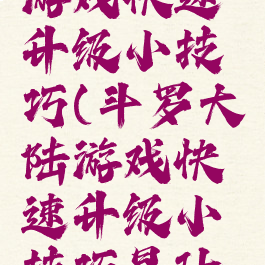 游戏快速
升级小技
巧(斗罗大
陆游戏快
速升级小